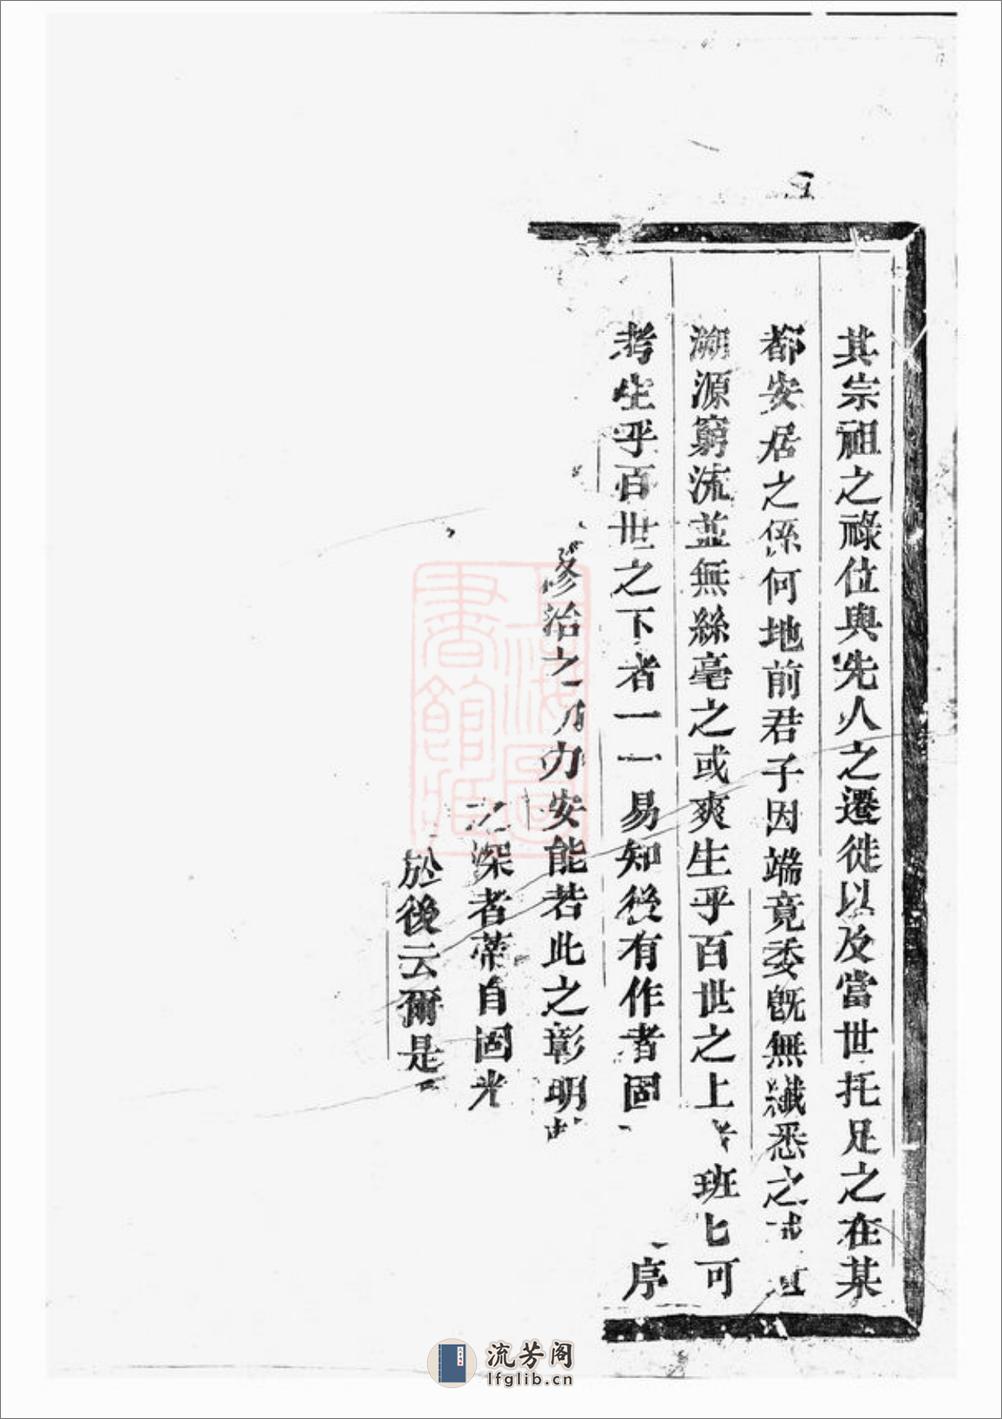 其宗祖之祿位與先人之遷徙以及當世托足之在某
都安居之係何地前君子因端竟委旣無纖悉之
溯源窮流並無絲毫之或爽生乎百世之上 班七可
考生乎百世之下者一一易知後有作者固 序
修治之 力安能若此之彰明
之深者蒂自固光
於後云爾是
上海圖書館藏
流芳阁
lfglib.cn